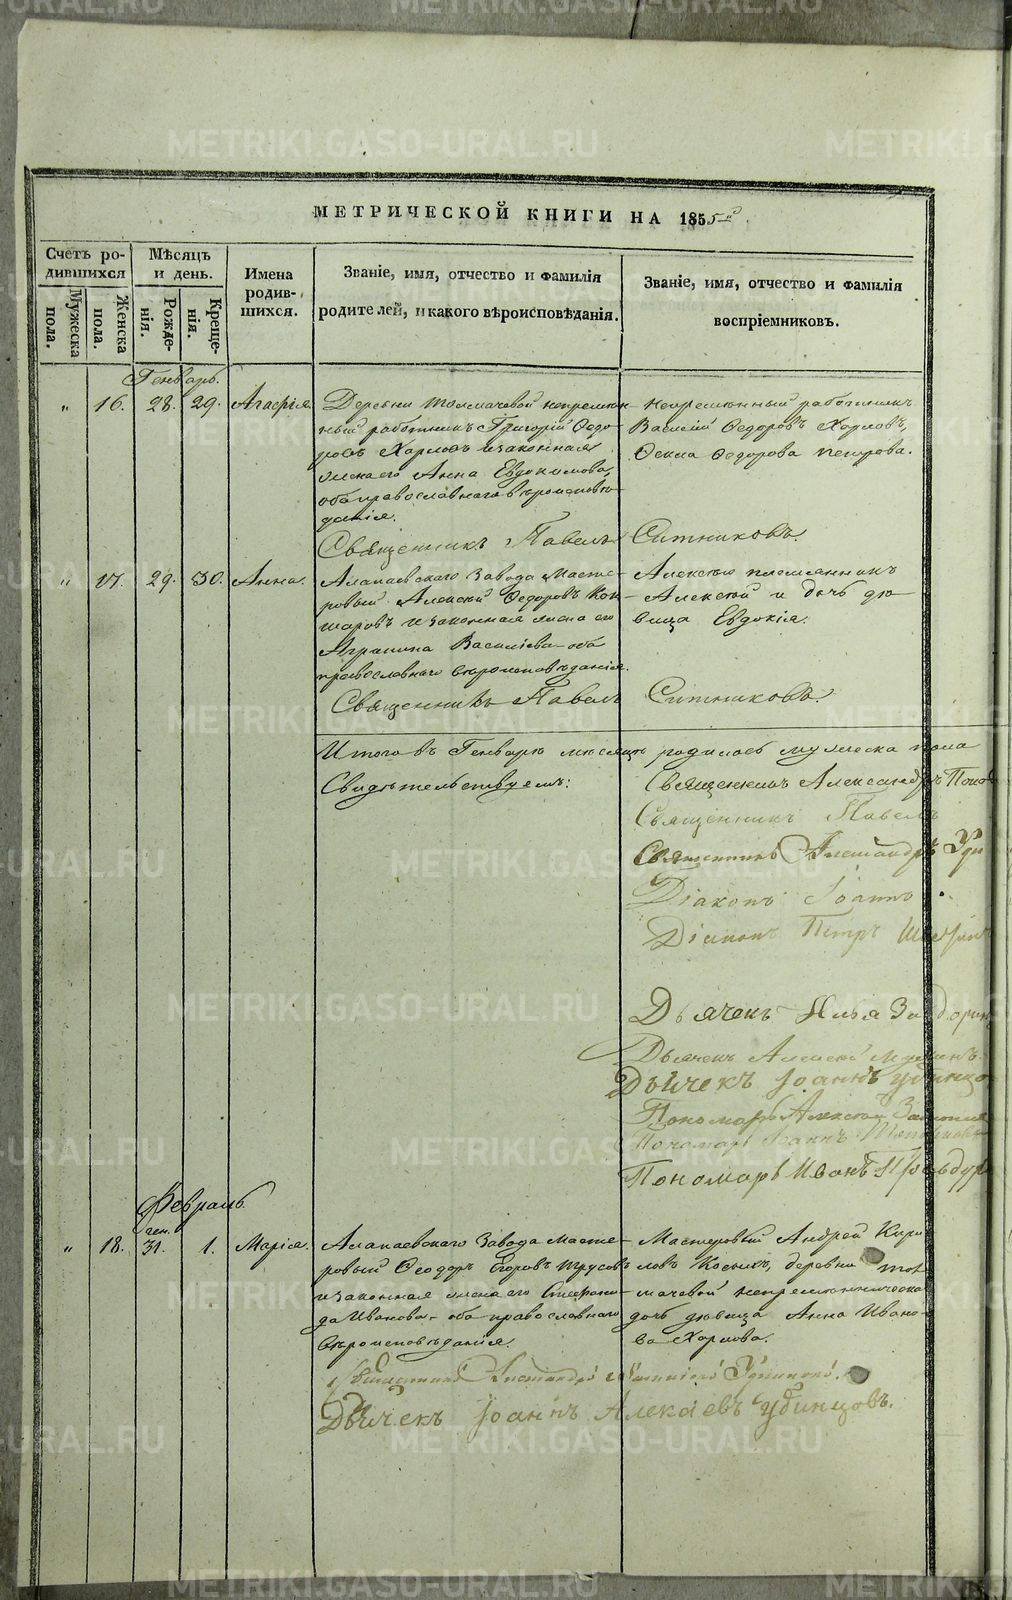 МЕТРИЧЕСКОЙ КНИГИ НА 1855й
Счетъ родившихся
Мѣсяцъ и день.
Имена родившихся.
Званіе, имя, отчество и фамилія родителей, и какого вѣроисповѣданія.
Званіе, имя, отчество и фамилія воспріемниковъ.
Мужеска пола.
Женска пола.
Рожденія.
Крещенія.
Генварь.
" 16. 28. 29. Агаѳія.
Деревни Толмачевой непремѣн-
ный работникъ Григорій Ѳедо-
ровъ Харловъ и законная
жена его Анна Евдокимова,
оба православнаго вѣроисповѣ-
данія.
Непремѣнный работникъ
Василій Ѳедоровъ Харловъ,
Ѳедорова
Священникъ Павелъ Ситниковъ.
" 17. 29. 30. Анна.
Алапаевскаго Завода Масте-
ровый Алексѣй Ѳедоровъ Кон-
шаровъ и законная жена его
Агрипина Васильева оба
православнаго вѣроисповѣданія.
Алексѣю племянникъ
Алексѣй и дочь дѣ-
вица Евдокія.
Священникъ Павелъ Ситниковъ.
Итого въ Генварѣ мѣсяцѣ родилось мужеска пола
Свидѣтельствуемъ:
Священникъ Александръ Попо
Священникъ Павелъ
Священникъ Александръ Уди
Діаконъ Іоаннъ
Діаконъ Петръ
Дьячекъ Илья Задорин
Дьячекъ Алексѣй
Дьячекъ Іоаннъ Удинцо
Пономарь Алексѣй
Пономарь Іоаннъ
Пономарь Иванъ
Февраль
ген.
" 18. 31. 1. Марія.
Алапаевскаго Завода масте-
ровый Ѳеодоръ Егоровъ Трусовъ
и законная жена его Степани-
да Иванова, оба православнаго
вѣроисповѣданія.
Мастеровый Андрей Кири-
ловъ Косыхъ, деревни Тол-
мачевой непремѣнническа
дочь дѣвица Анна Ивано-
ва Харлова.
Священникъ Александръ Удинцовъ.
Дьячекъ Іоаннъ Алекаевъ Удинцовъ.
METRIKI.GASO-URAL.RU